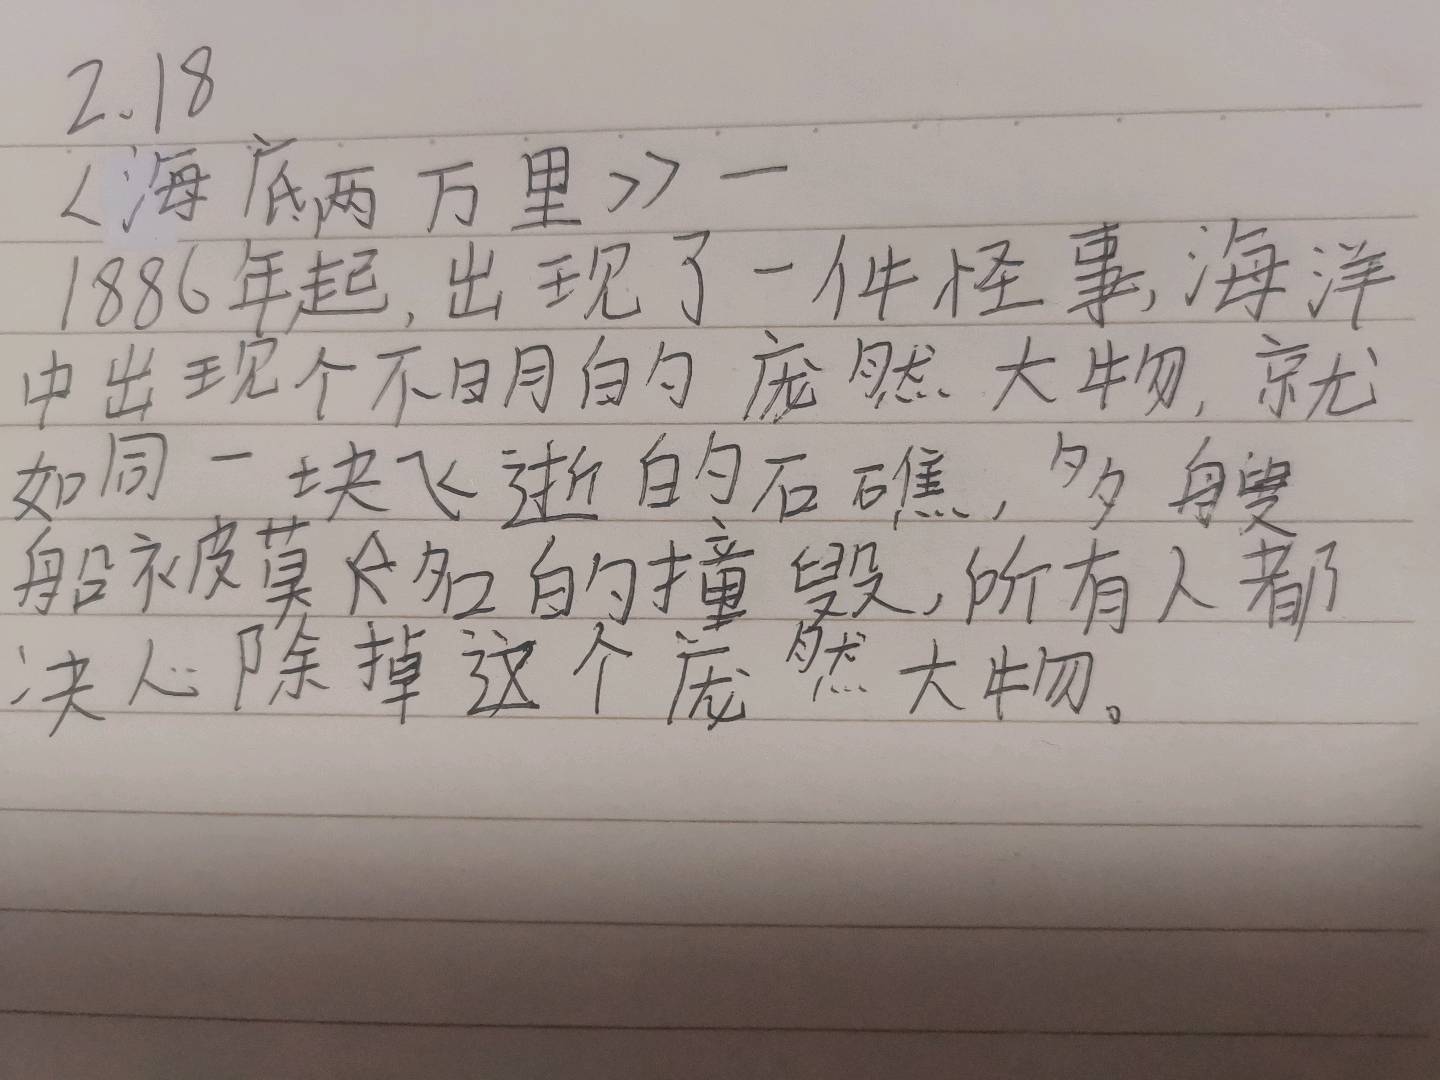 2.18
<海底两万里>>一
1886年起,出现了一件怪事,海洋
中出现个不明的庞然大物,就
如同一块飞逝的石礁,多艘
船被莫名的撞毁,所有人都
决心除掉这个庞然大物。